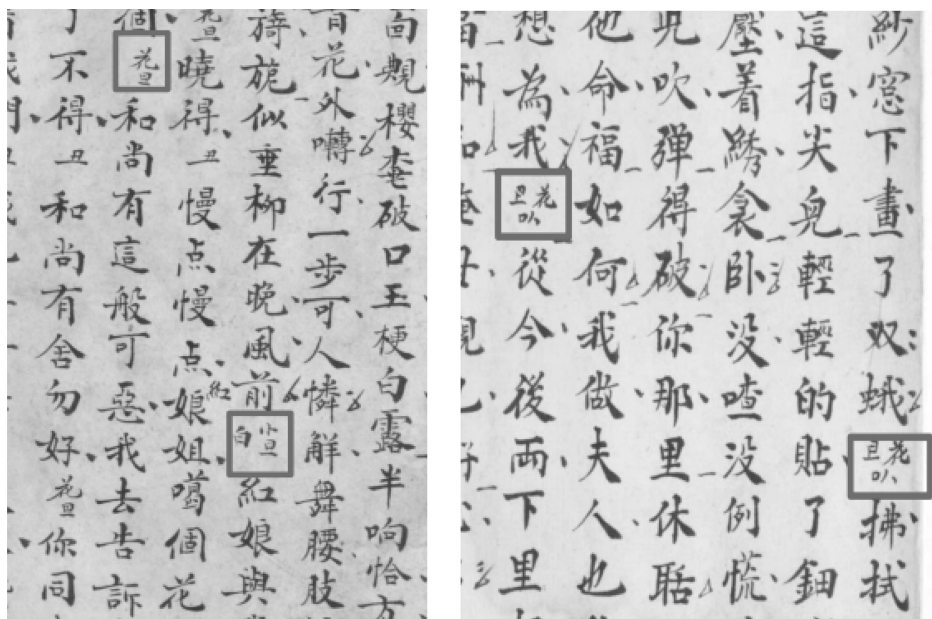 面靦櫻桃破口玉梗白露半晌恰方
花外囀行一步可人憐解舞腰肢
旖旎似垂柳在晚風前小旦白紅娘與
花旦曉得丑慢点慢点紅娘姐噶個花
個花旦和尚有這般可惡我去告訴
了不得丑和尚有舍勿好花旦你同
紗窓下畫了双蛾花旦拂拭
這指尖兒輕輕的貼了鈿
壓着綉衾卧没喳没例慌
兒吹弹得破你那里休聒
他命福如何我做夫人也
想為我花旦從今後兩下里